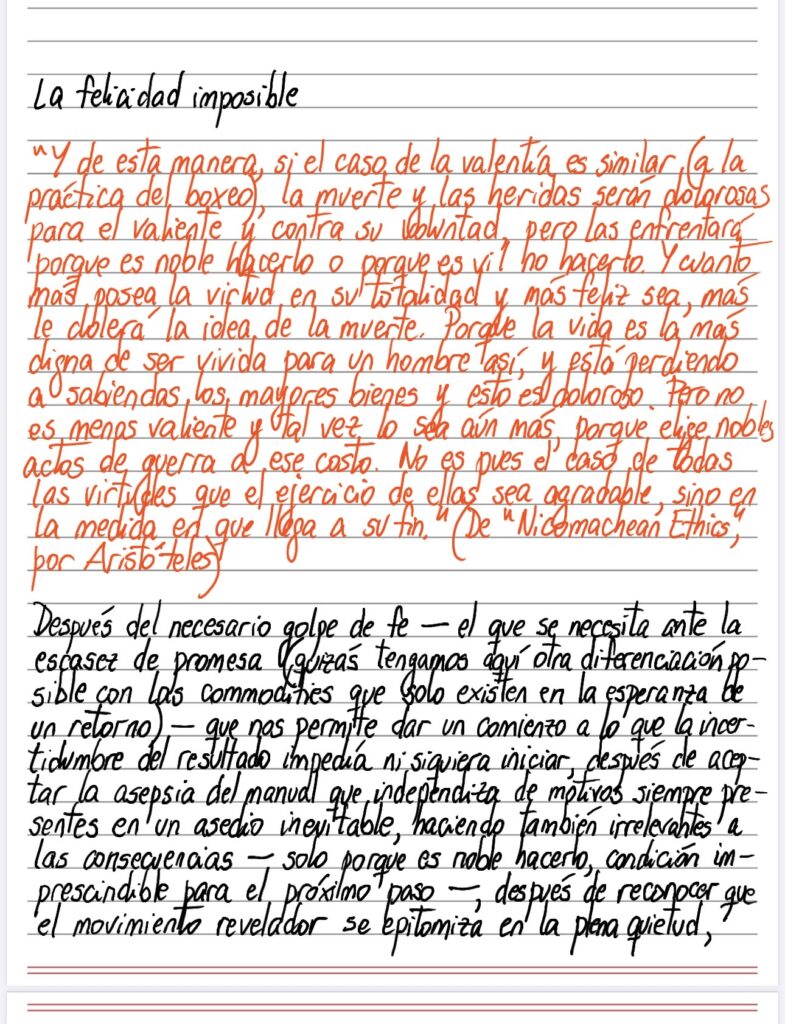 La felicidad imposible
"Y de esta manera, si el caso de la valentía es similar (a la
práctica del boxeo), la muerte y las heridas serán dolorosas
para el valiente y contra su voluntad, pero las enfrentará
porque es noble hacerlo o porque es vil no hacerlo. Y cuanto
más posea la virtud en su totalidad y más feliz sea, más
le dolerá la idea de la muerte. Porque la vida es la más
digna de ser vivida para un hombre así, y está perdiendo
a sabiendas los mayores bienes y esto es doloroso. Pero no
es menos valiente y tal vez lo sea aún más, porque elige nobles
actos de guerra a ese costo. No es pues el caso de todas
las virtudes que el ejercicio de ellas sea agradable, sino en
la medida en que llega a su fin." (De "Nicomachean Ethics",
por Aristóteles)
Después del necesario golpe de fe — el que se necesita ante la
escasez de promesa (quizás tengamos aquí otra diferenciación po-
sible con las commodities que solo existen en la esperanza de
un retorno) — que nos permite dar un comienzo a lo que la incer-
tidumbre del resultado impedía ni siquiera iniciar, después de acep-
tar la asepsia del manual que independiza de motivos siempre pre-
sentes en un asedio inevitable, haciendo también irrelevantes a
las consecuencias — solo porque es noble hacerlo, condición im-
prescindible para el próximo paso —, después de reconocer que
el movimiento revelador se epitomiza en la plena quietud,